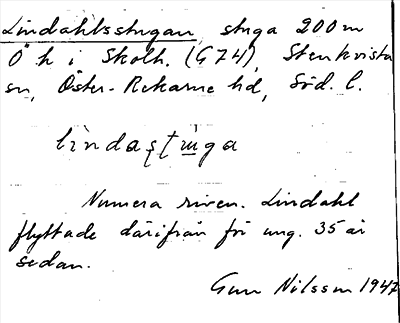 Lindahlsstugan, stuga 200 m
Ö h i Skolh. (G74), Stenkvista
sn, Öster-Rekarne hd, Söd. l.
lìndaştúga
Numera riven. Lindahl
flyttade därifrån för ung. 35 år
sedan.
Gun Nilsson 1947